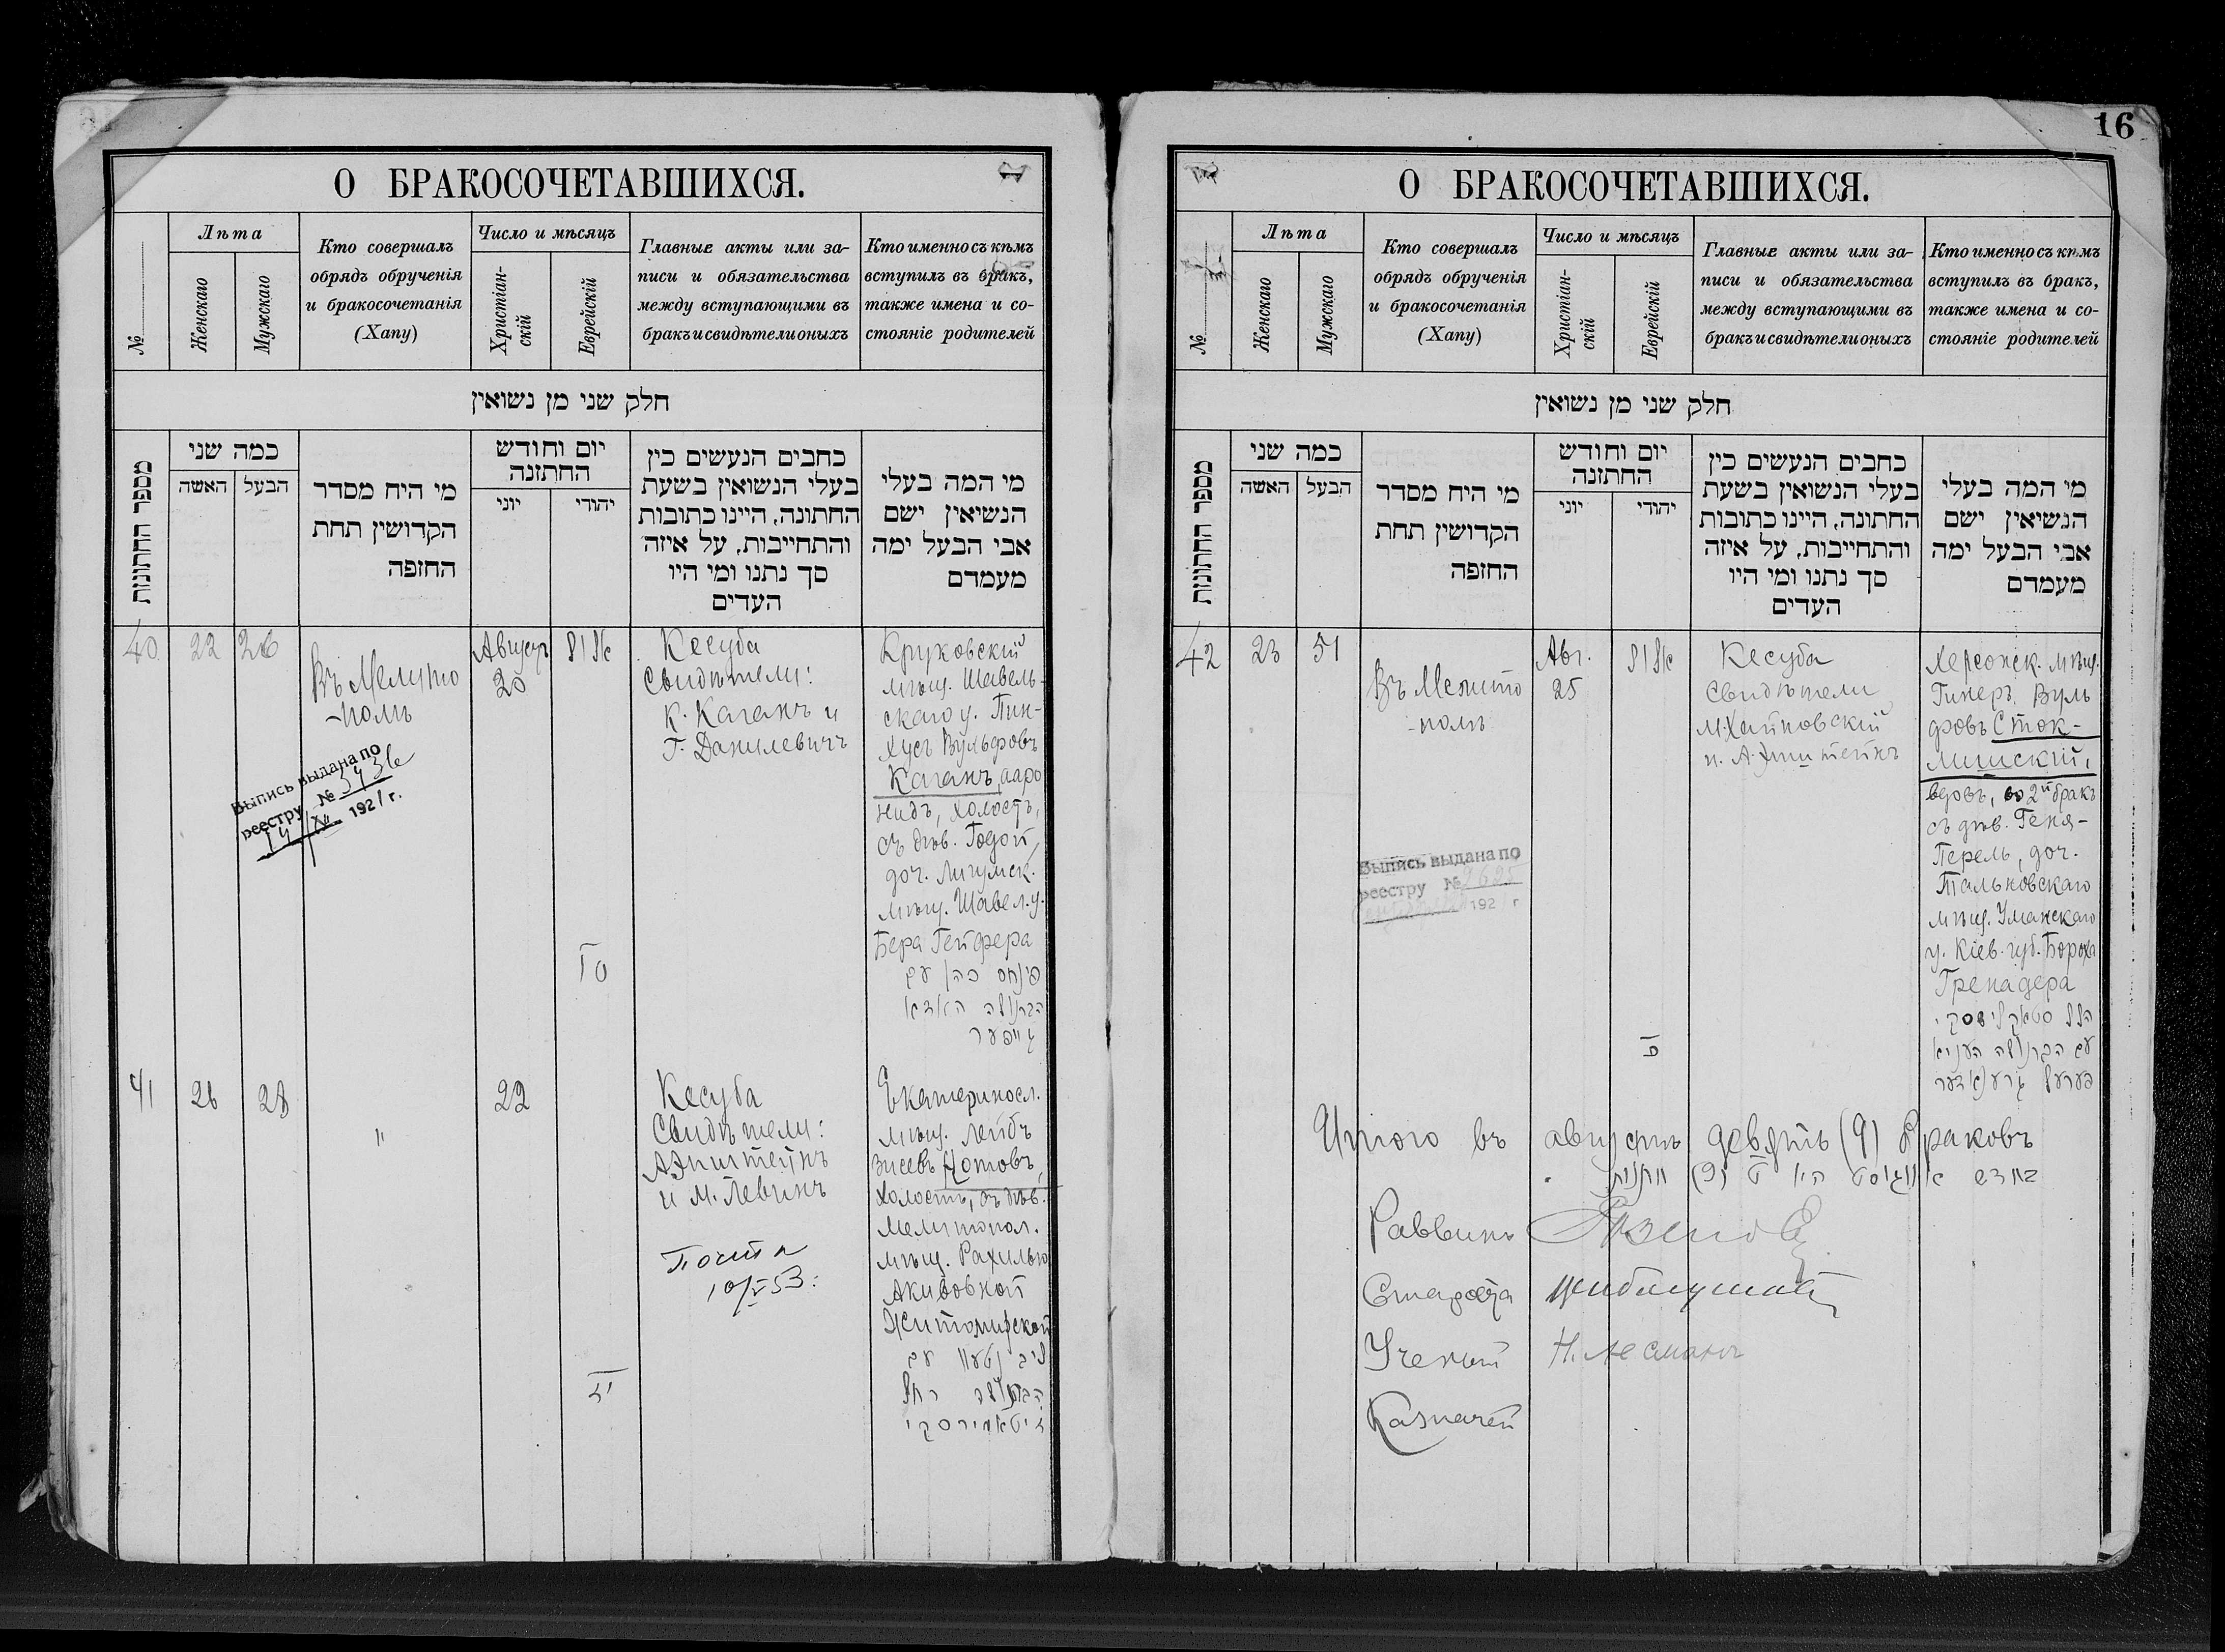 О БРАКОСОЧЕТАВШИХСЯ.
№
Лѣта
Женскаго
Мужскаго
Кто совершалъ
обрядъ обрученія
и бракосочетанія
(Хапу)
Число и мѣсяцъ
Христіан-
скій
Еврейскій
Главные акты или за-
писи и обязательства
между вступающими въ
бракъ и свидѣтели оныхъ
Кто именно съ кѣмъ
вступилъ въ бракъ,
также имена и со-
стояніе родителей
חלק שני מן נשואין
מספר החתונות
כמה שני
האשה
הבעל
מי היח מסדר
הקדושין תחת
החזפה
יום וחודש
החתזנה
יוני
יהודי
כחבים הנעשים כין
בעלי הנשואין בשעת
החתונה, היינו כתובות
והתחייבות, על איזה
סך נתנו ומי היו
העדים
מי המה בעלי
הנשיאין ישם
אבי הבעל ימה
מעמדם
40
22
26
Въ Мелито
-полѣ
Августъ
20
Кесуба
Свидѣтели:
К. Каганъ и
Г. Данилевичъ
Круковскій
мѣщ. Шавель-
скаго у. Пин-
хусъ Вульфовъ
Каганъ, ааро
нидъ, холостъ,
съ дѣв. Годой,
доч. Лигумск.
мѣщ. Шавел. у.
Бера Гейфера
פינחס כהן עם
הבתולה האדא
גייפער
Выпись выдана по
реестру № 3436
14/XII 1921 г.
41
26
28
"
22
Кесуба
Свидѣтели:
А Эпштейнъ
и М. Левинъ
10/V 53.
Екатеринosл.
мѣщ. Лейбъ
Зисевъ Нотовъ,
холостъ, съ дѣв.
мелитопол.
мѣщ. Рахилью
Акивовной
Житомирской
ליב נטעוו עם
הבתולה רחל
זיטאמירסקי
16
О БРАКОСОЧЕТАВШИХСЯ.
№
Лѣта
Женскаго
Мужскаго
Кто совершалъ
обрядъ обрученія
и бракосочетанія
(Хапу)
Число и мѣсяцъ
Христіан-
скій
Еврейскій
Главные акты или за-
писи и обязательства
между вступающими въ
бракъ и свидѣтели оныхъ
Кто именно съ кѣмъ
вступилъ въ бракъ,
также имена и со-
стояніе родителей
חלק שני מן נשואין
מספר החתונות
כמה שני
האשה
הבעל
מי היח מסדר
הקדושין תחת
החזפה
יום וחודש
החתזנה
יוני
יהודי
כחבים הנעשים כין
בעלי הנשואין בשעת
החתונה, היינו כתובות
והתחייבות, על איזה
סך נתנו ומי היו
העדים
מי המה בעלי
הנשיאין ישם
אבי הבעל ימה
מעמדם
42
23
51
Въ Мелито
-полѣ
Авг.
25
Кесуба
Свидѣтели
М. Хайновскій
и. А. Эпштейнъ
Херсонск. мѣщ.
Гинеръ Вуль
фовъ Сток-
лишскій,
вдовъ, во 2й бракъ
съ дѣв. Геня-
Перель, доч.
Тальновскаго
мѣщ. Уманскаго
у. Кіев. губ. Бороха
Гренадера
עם הבתולה העניא
פערעל גרענאדער
Выпись выдана по
реестру № 2625
192 г
Итого въ августѣ девять (9) браковъ
Раввинъ
Староста
Ученый Н. Лесманъ
Казначей